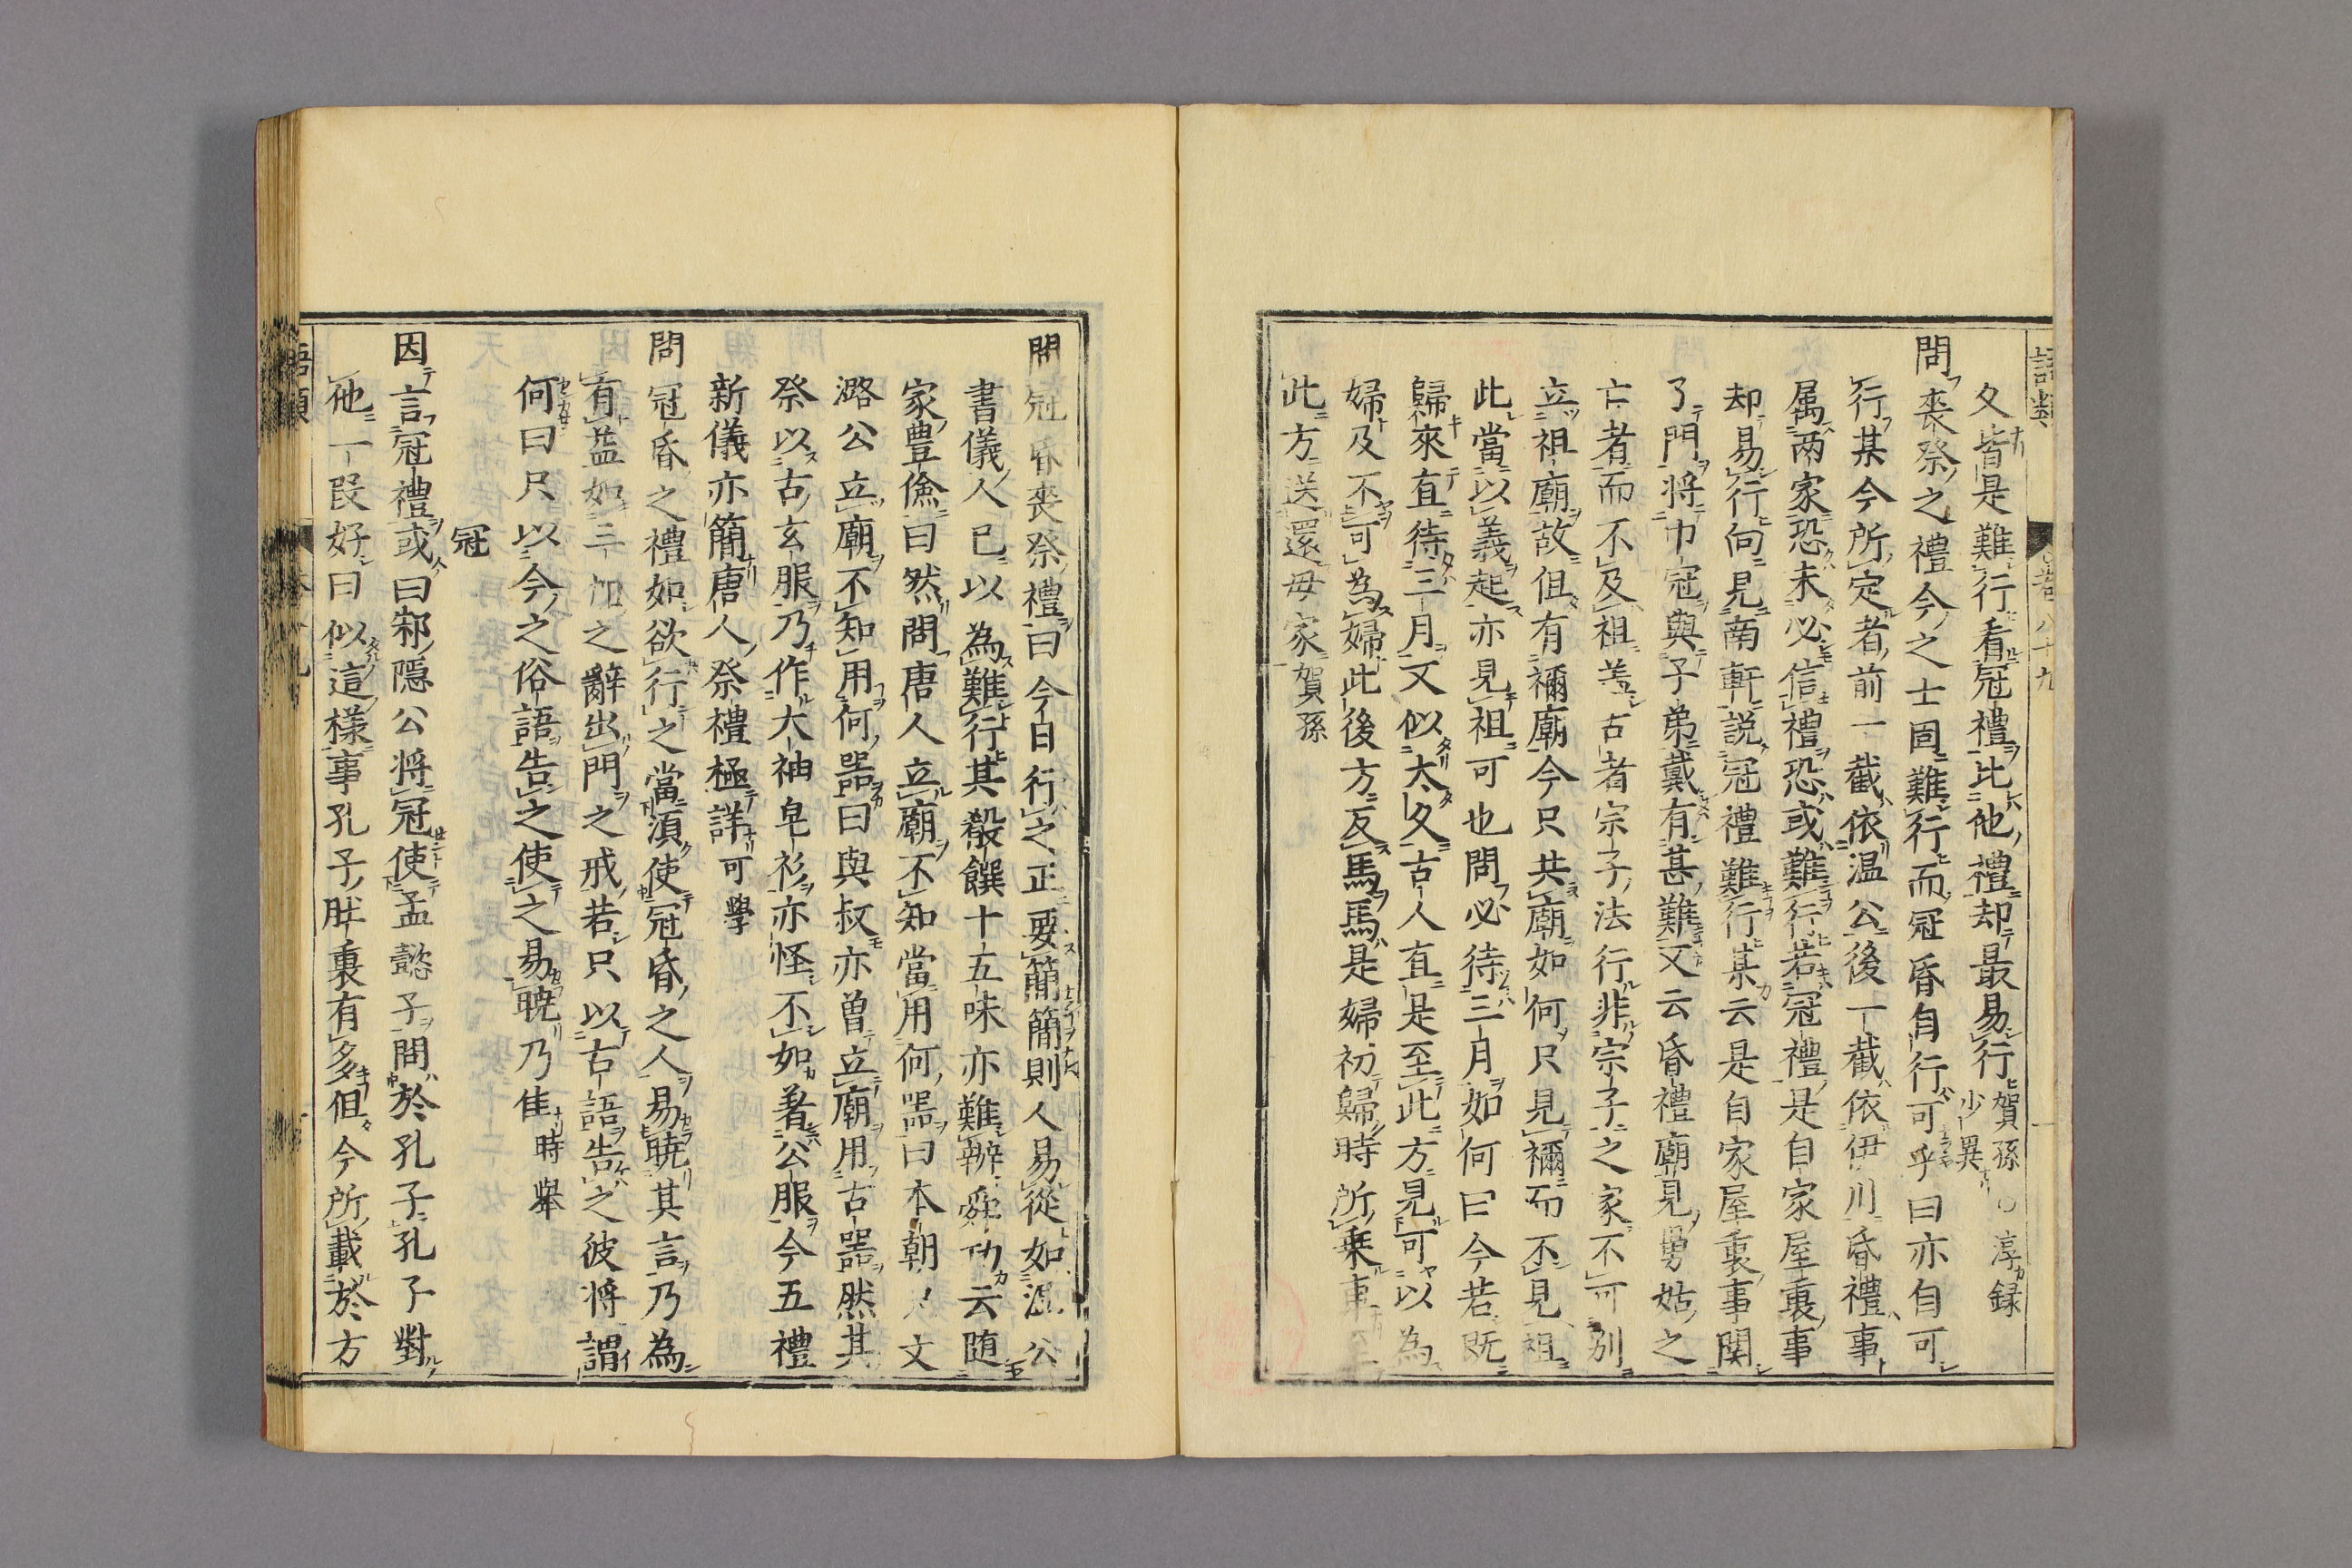 語類
卷八十九
一
久皆是難行看冠禮比他禮却最易行賀孫○淳録少異
問喪祭之禮今之士固難行而冠昏自行可乎曰亦自可
行某今所定者前一截依温公後一截依伊川昏禮事
属兩家恐未必信禮恐或難行若冠禮是自家屋裏事
却易行向見南軒説冠禮難行某云是自家屋裏事関
了門将巾冠與子弟戴有甚難又云昏禮廟見舅姑之
亡者而不及祖盖古者宗子法行非宗子之家不可別
立祖廟故但有禰廟今只共廟如何只見禰而不見祖
此當以義起亦見祖可也問必待三月如何曰今若既
歸來直待三月又似太久古人直是至此方見可以為
婦及不可為婦此後方反馬馬是婦初歸時所乗車至
此方送還母家賀孫
問冠昏喪祭禮曰今日行之正要簡簡則人易從如温公
書儀人已以為難行其殽饌十五味亦難辦舜功云随
家豊儉曰然問唐人立廟不知當用何噐曰本朝文
潞公立廟不知用何噐曰與叔亦曾立廟用古噐然其
祭以古玄服乃作大袖皂衫亦怪不如著公服今五禮
新儀亦簡唐人祭禮極詳可學
問冠昏之禮如欲行之當湏使冠昏之人易暁其言乃為
有益如三加之辭出門之戒若只以古語告之彼将謂
何曰只以今之俗語告之使之易暁乃佳時舉
冠
因言冠禮或曰邾隱公将冠使孟懿子問於孔子孔子對
他一段好曰似這樣事孔子肚裏有多但今所載於方
語類